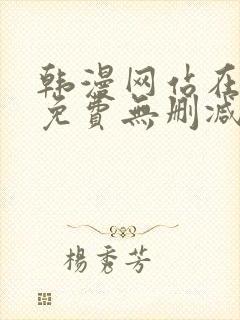 韩漫网站在
免費無删减
楊秀芳